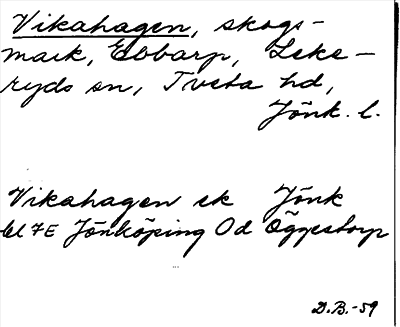 Vikahagen, skogs-
mark, Ebbarp, Leke-
ryds sn, Tveta hd,
Jönk. l.
Vikahagen sk Jönk
bl 7E Jönköping Od Öggestorp
D.B.-59